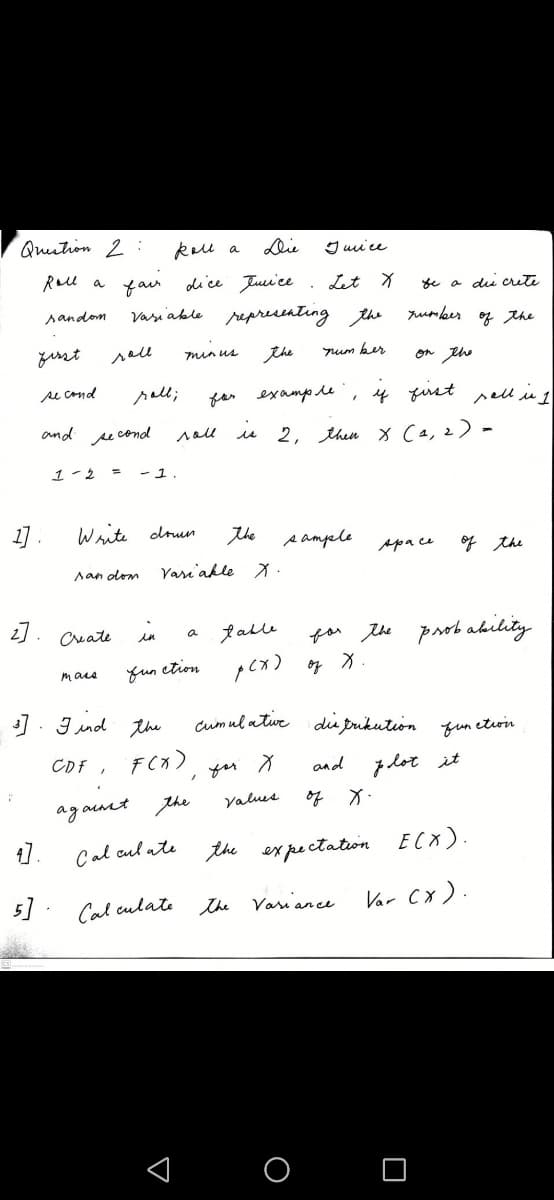 Question 2 : Roll a Die Twice
Roll a fair dice Twice . Let X be a discrete
random variable representing the number of the
first roll minus the number on the
second roll; for example, if first roll is 1
and second roll is 2, then X (1, 2) =
1 - 2 = - 1.
1]. Write down the sample space of the
random variable X.
2]. Create in a table for the probability
mass function p(X) of X.
3]. Find the cumulative distribution function
CDF, F(X), for X and plot it
against the values of X.
4]. Calculate the expectation E(X).
5]. Calculate the variance Var (X).